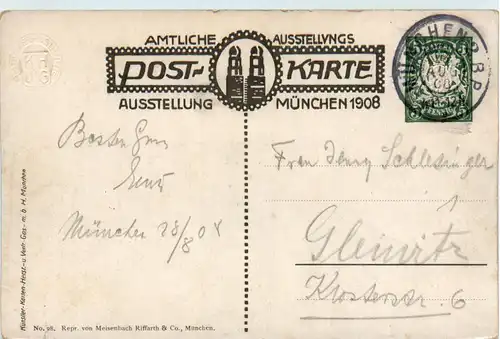 AMTLICHE AUSSTELLVNGS
POST- KARTE
AUSSTELLUNG MÜNCHEN 1908
MÜNCHEN 2 B.P.
AUG
5
Besten Gruss
München 28/8 08
Frau Jenny Schlesinger
Gleiwitz
Klosterstr. 6
Künstler-Karten-Herst.-u Vertr. Ges. m. b. H. München
No. 98. Repr. von Meisenbach Riffarth & Co., München.